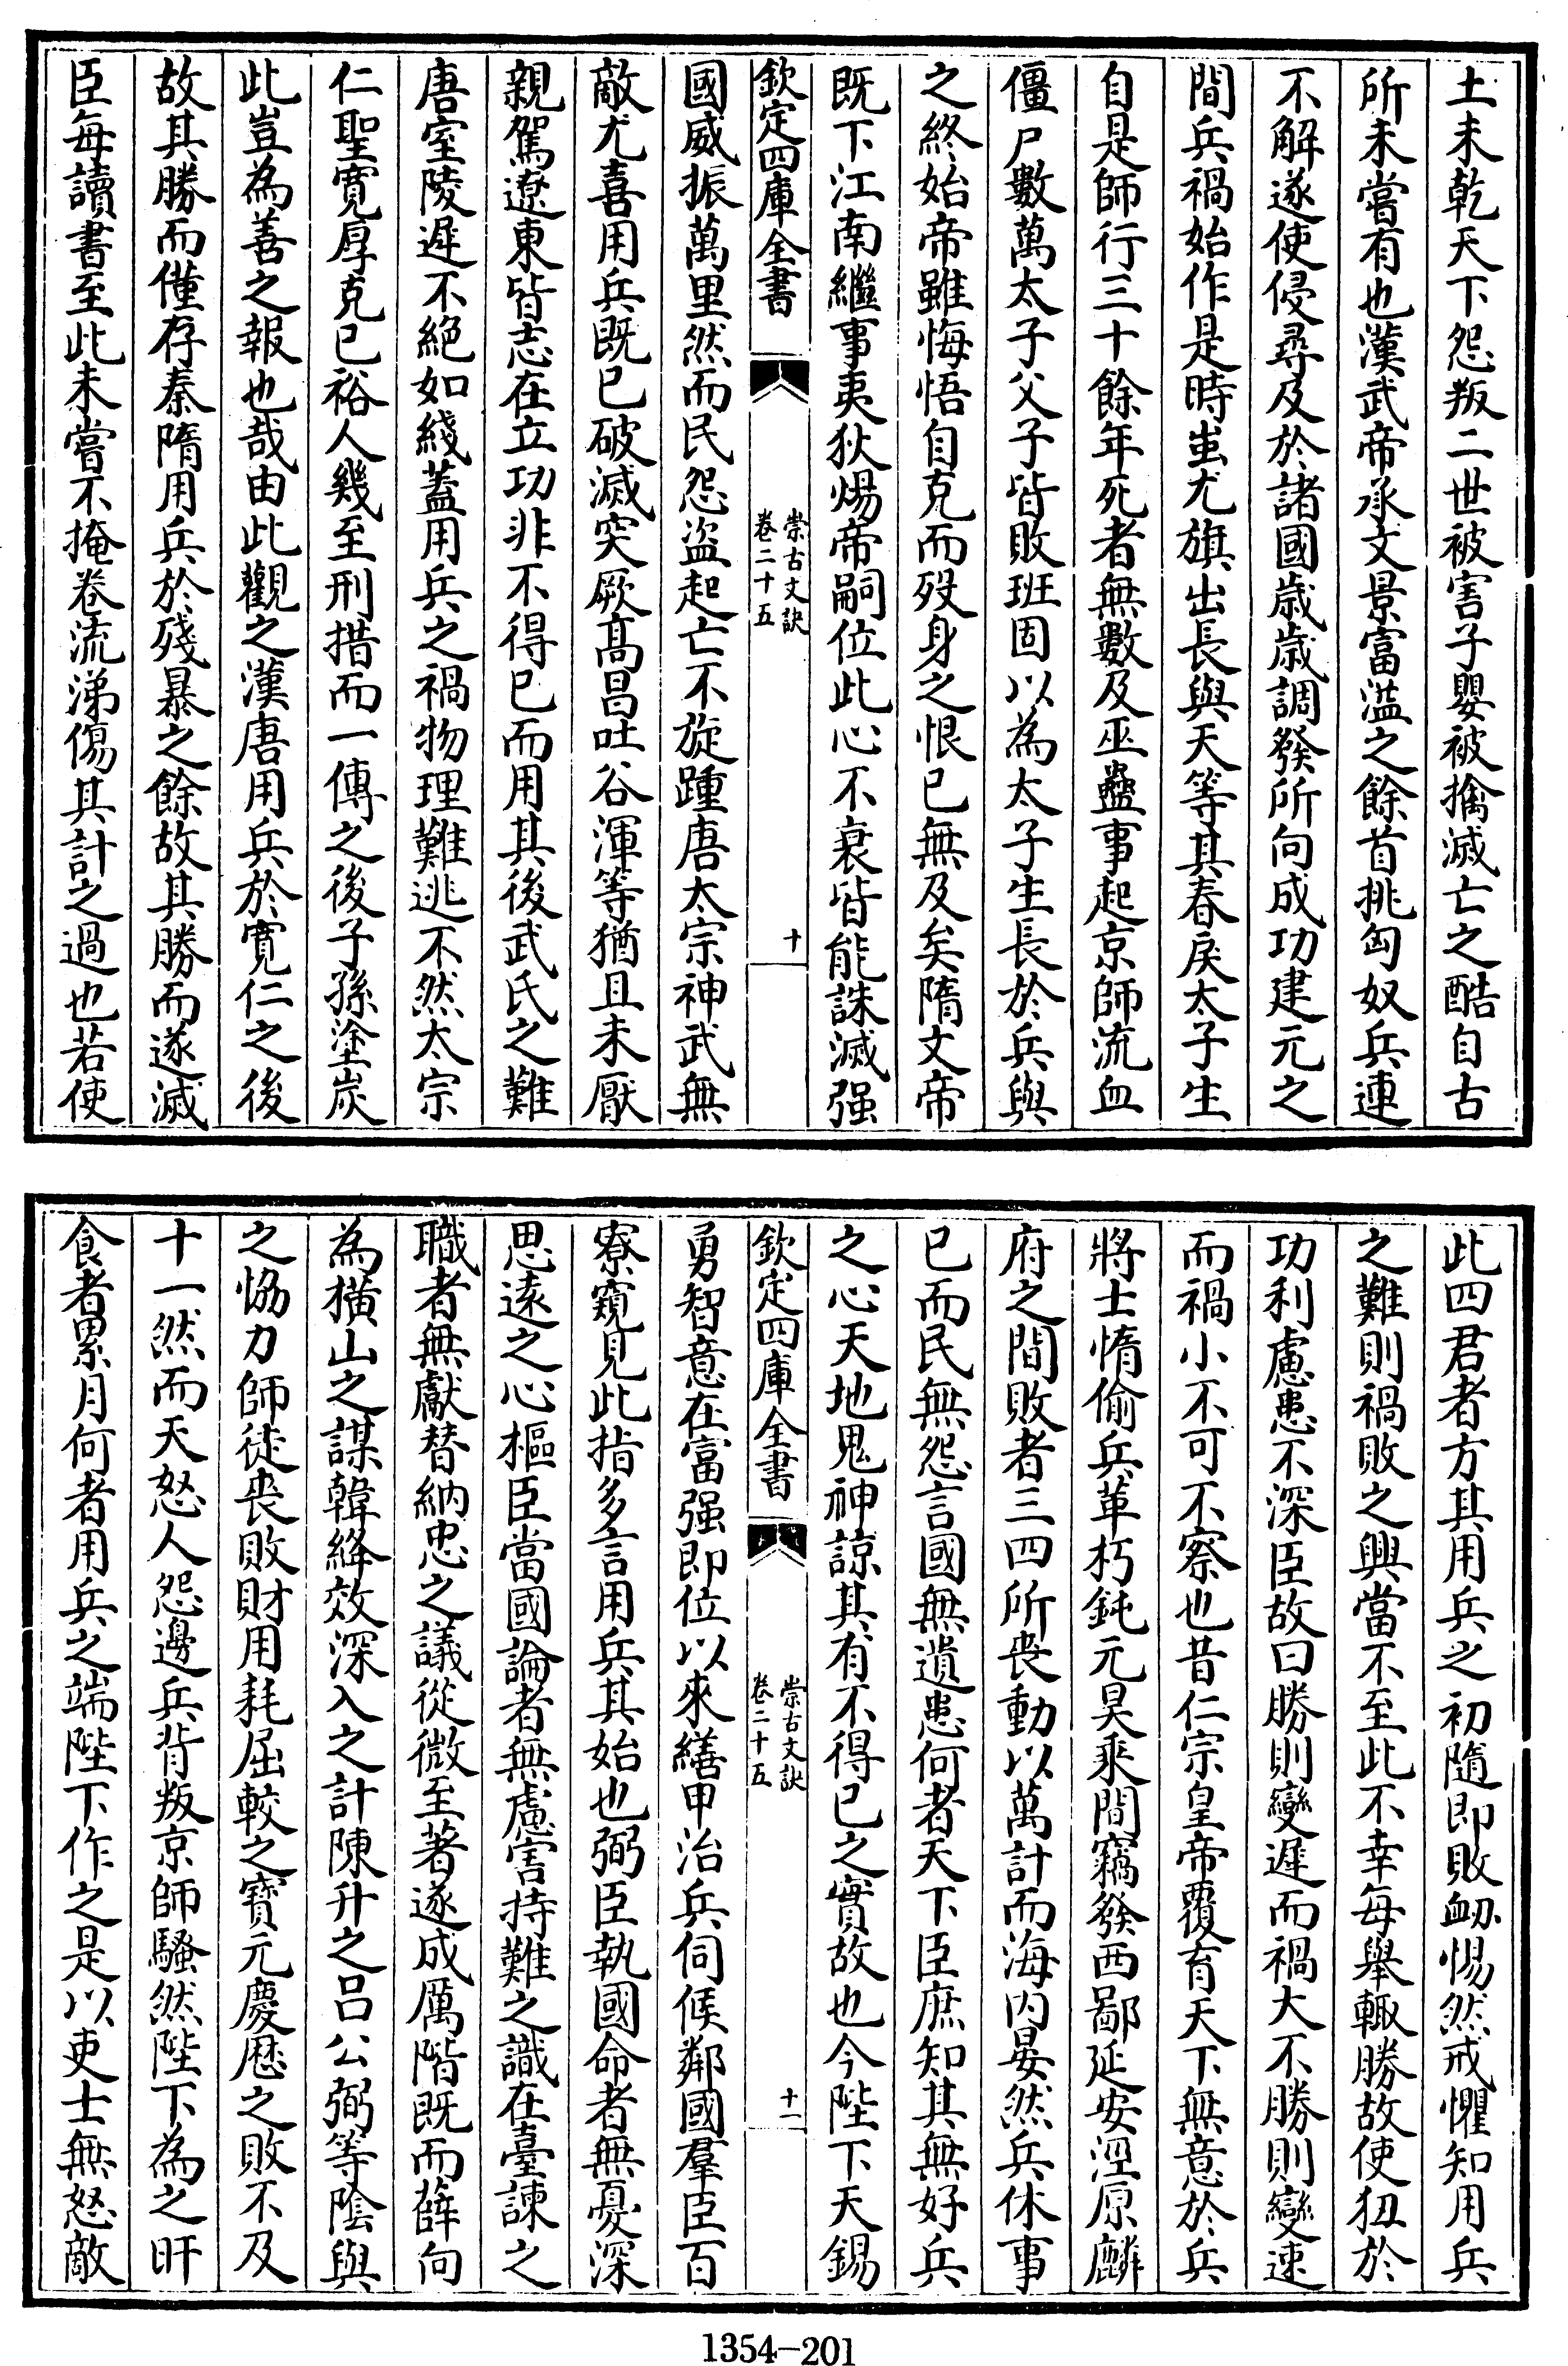 土未乾天下怨叛二世被害子嬰被擒滅亡之酷自古
所未嘗有也漢武帝承文景富溢之餘首挑匈奴兵連
不解遂使侵尋及於諸國歳歳調發所向成功建元之
間兵禍始作是時蚩尤旗出長與天等其春戾太子生
自是師行三十餘年死者無數及巫蠱事起京師流血
僵尸數萬太子父子皆敗班固以為太子生長於兵與
之終始帝雖悔悟自克而殁身之恨已無及矣隋文帝
既下江南繼事夷狄煬帝嗣位此心不衰皆能誅滅强
欽定四庫全書
崇古文訣
卷二十五
十
國威振萬里然而民怨盗起亡不旋踵唐太宗神武無
敵尤喜用兵既已破滅突厥髙昌吐谷渾等猶且未厭
親駕遼東皆志在立功非不得已而用其後武氏之難
唐室陵遲不絕如綫蓋用兵之禍物理難逃不然太宗
仁聖寛厚克已裕人幾至刑措而一傳之後子孫塗炭
此豈為善之報也哉由此觀之漢唐用兵於寛仁之後
故其勝而僅存秦隋用兵於殘暴之餘故其勝而遂滅
臣每讀書至此未嘗不掩卷流涕傷其計之過也若使
此四君者方其用兵之初隨即敗衂惕然戒懼知用兵
之難則禍敗之興當不至此不幸每舉輙勝故使狃於
功利慮患不深臣故曰勝則變遲而禍大不勝則變速
而禍小不可不察也昔仁宗皇帝覆育天下無意於兵
將士惰偷兵革朽鈍元昊乘間竊發西鄙延安涇原麟
府之間敗者三四所丧動以萬計而海内晏然兵休事
已而民無怨言國無遺患何者天下臣庶知其無好兵
之心天地鬼神諒其有不得已之實故也今陛下天錫
欽定四庫全書
崇古文訣
卷二十五
十一
勇智意在富强即位以來繕甲治兵伺候鄰國羣臣百
寮窺見此指多言用兵其始也弼臣執國命者無憂深
思遠之心樞臣當國論者無慮害持難之識在臺諫之
職者無獻替納忠之議從微至著遂成厲階既而薛向
為橫山之謀韓絳效深入之計陳升之呂公弼等陰與
之恊力師徒丧敗財用耗屈較之寳元慶厯之敗不及
十一然而天怒人怨邊兵背叛京師騷然陛下為之旰
食者累月何者用兵之端陛下作之是以吏士無怒敵
1354-201